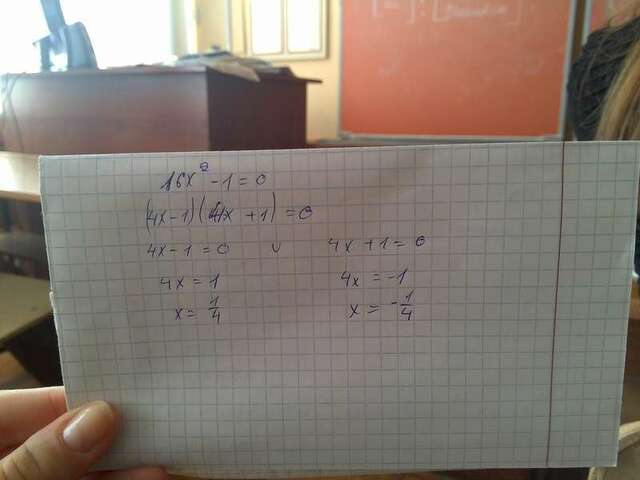 16x² - 1 = 0
(4x-1)(4x +1) = 0
4x - 1 = 0 ∪ 4x + 1 = 0
4x = 1 4x = -1
x = 1/4 x = -1/4